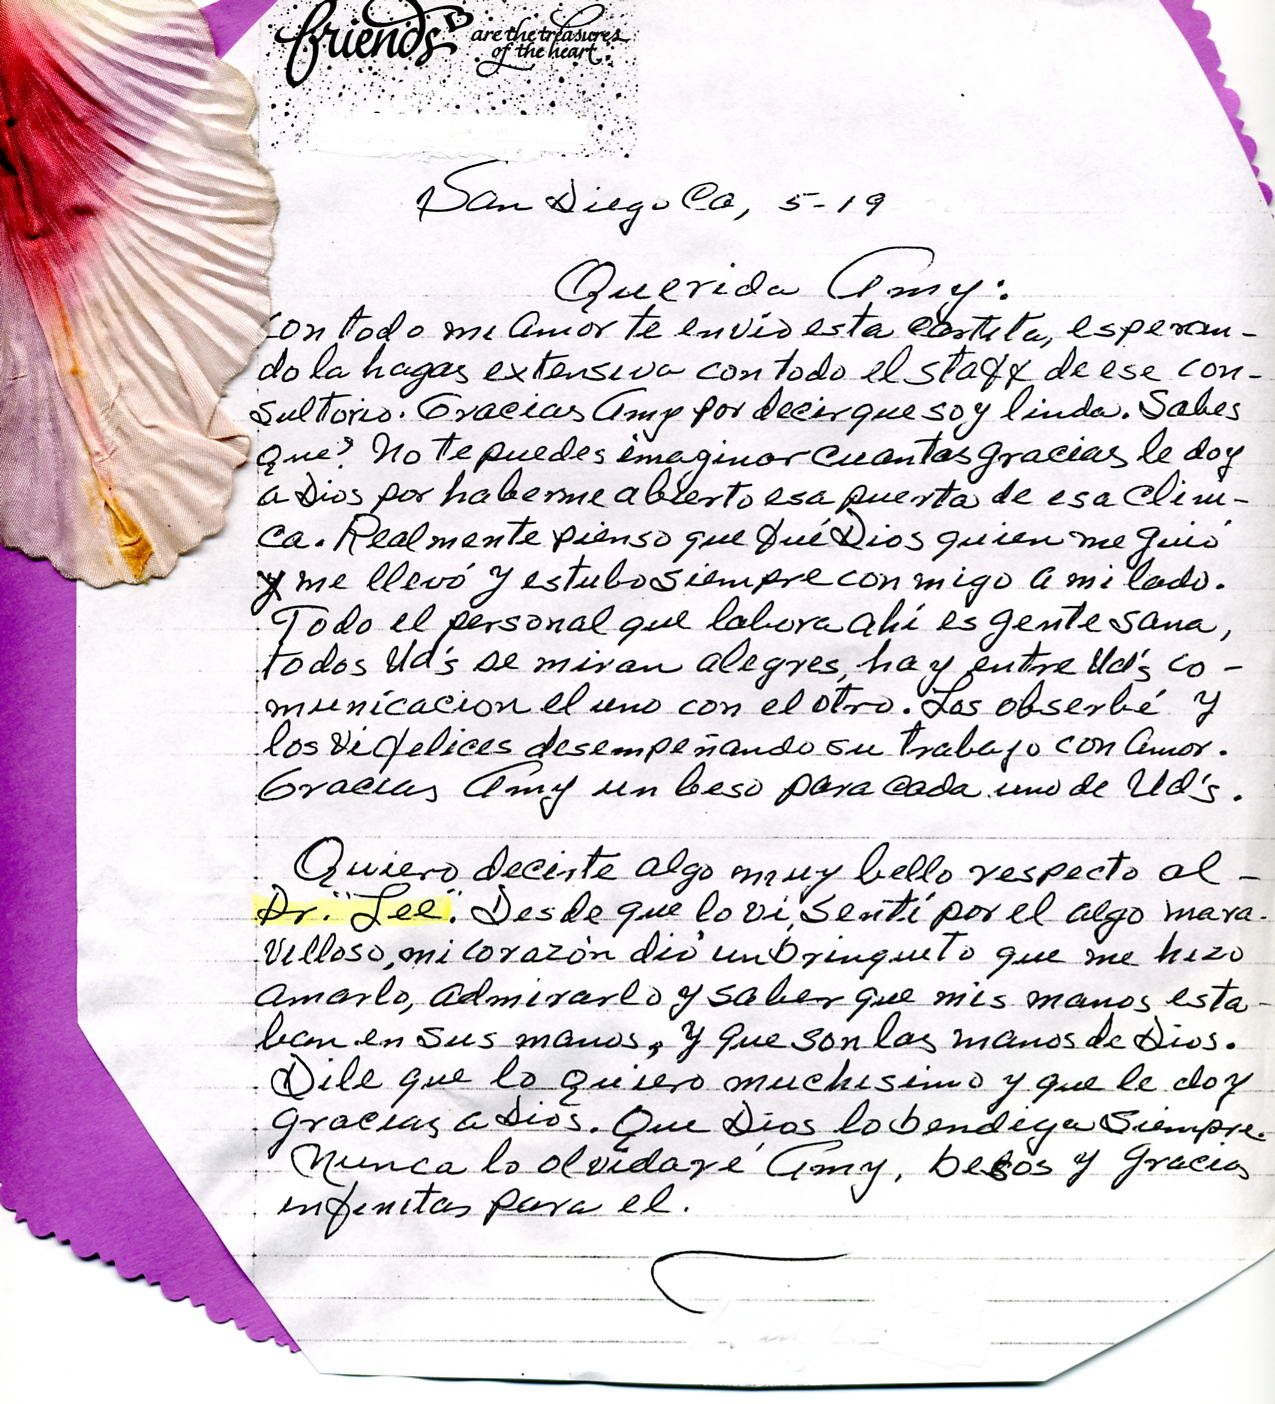 friends are the treasures
of the heart.
San Diego Ca, 5-19
Querida Amy:
Con todo mi Amor te envio esta cartita, esperan-
do la hagas extensiva con todo el staff de ese con-
sultorio. Gracias Amy por decir que soy linda. Sabes
que? No te puedes imaginar cuantas gracias le doy
a Dios por haberme abierto esa puerta de esa Clini-
ca. Realmente pienso que fué Dios quien me guió
y me llevó y estubo siempre conmigo a mi lado.
Todo el personal que labora ahí es gente sana,
todos Ud's se miran alegres, hay entre Ud's co-
municacion el uno con el otro. Los obserbé y
los vi felices desempeñando su trabajo con Amor.
Gracias Amy un beso para cada uno de Ud's.
Quiero decirte algo muy bello respecto al -
Dr. "Lee". Desde que lo vi, sentí por el algo mara-
villoso, mi corazón dió un brinquito que me hizo
amarlo, admirarlo y saber que mis manos esta-
ban en sus manos, y que son las manos de Dios.
Dile que lo quiero muchisimo y que le doy
gracias a Dios. Que Dios lo bendiga siempre.
Nunca lo olvidaré Amy, besos y gracias
infinitas para el.